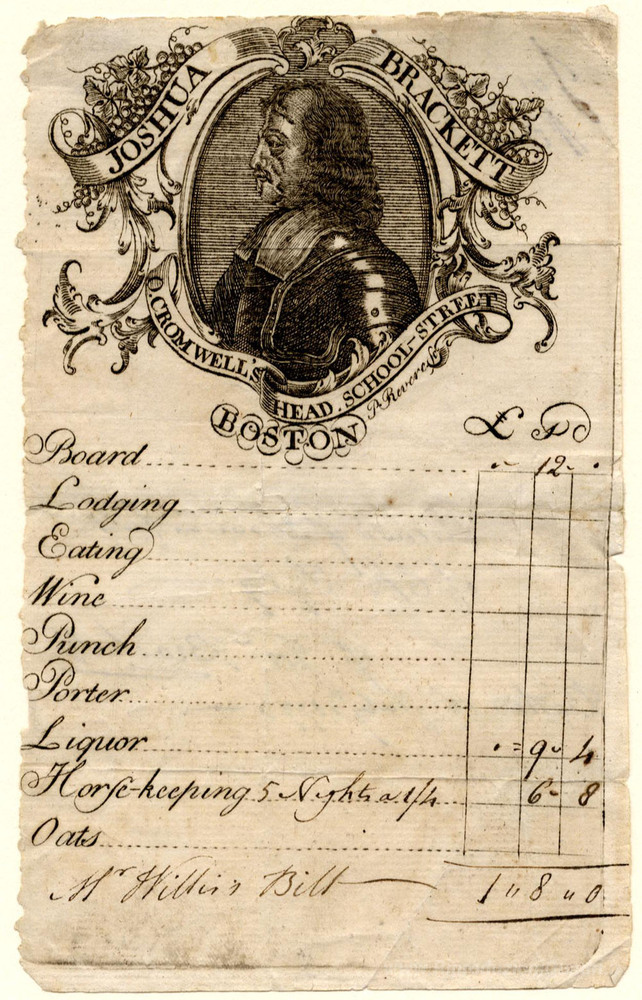 JOSHUA BRACKETT
O. CROMWELL'S HEAD. SCHOOL-STREET
P Revere sc
BOSTON
£ S D
Board 12 - .
Lodging
Eating
Wine
Punch
Porter
Liquor 9 4
Horse-keeping 5 Nights a 1/4 6 - 8
Oats
Mr Willis's Bill 1 " 8 " 0